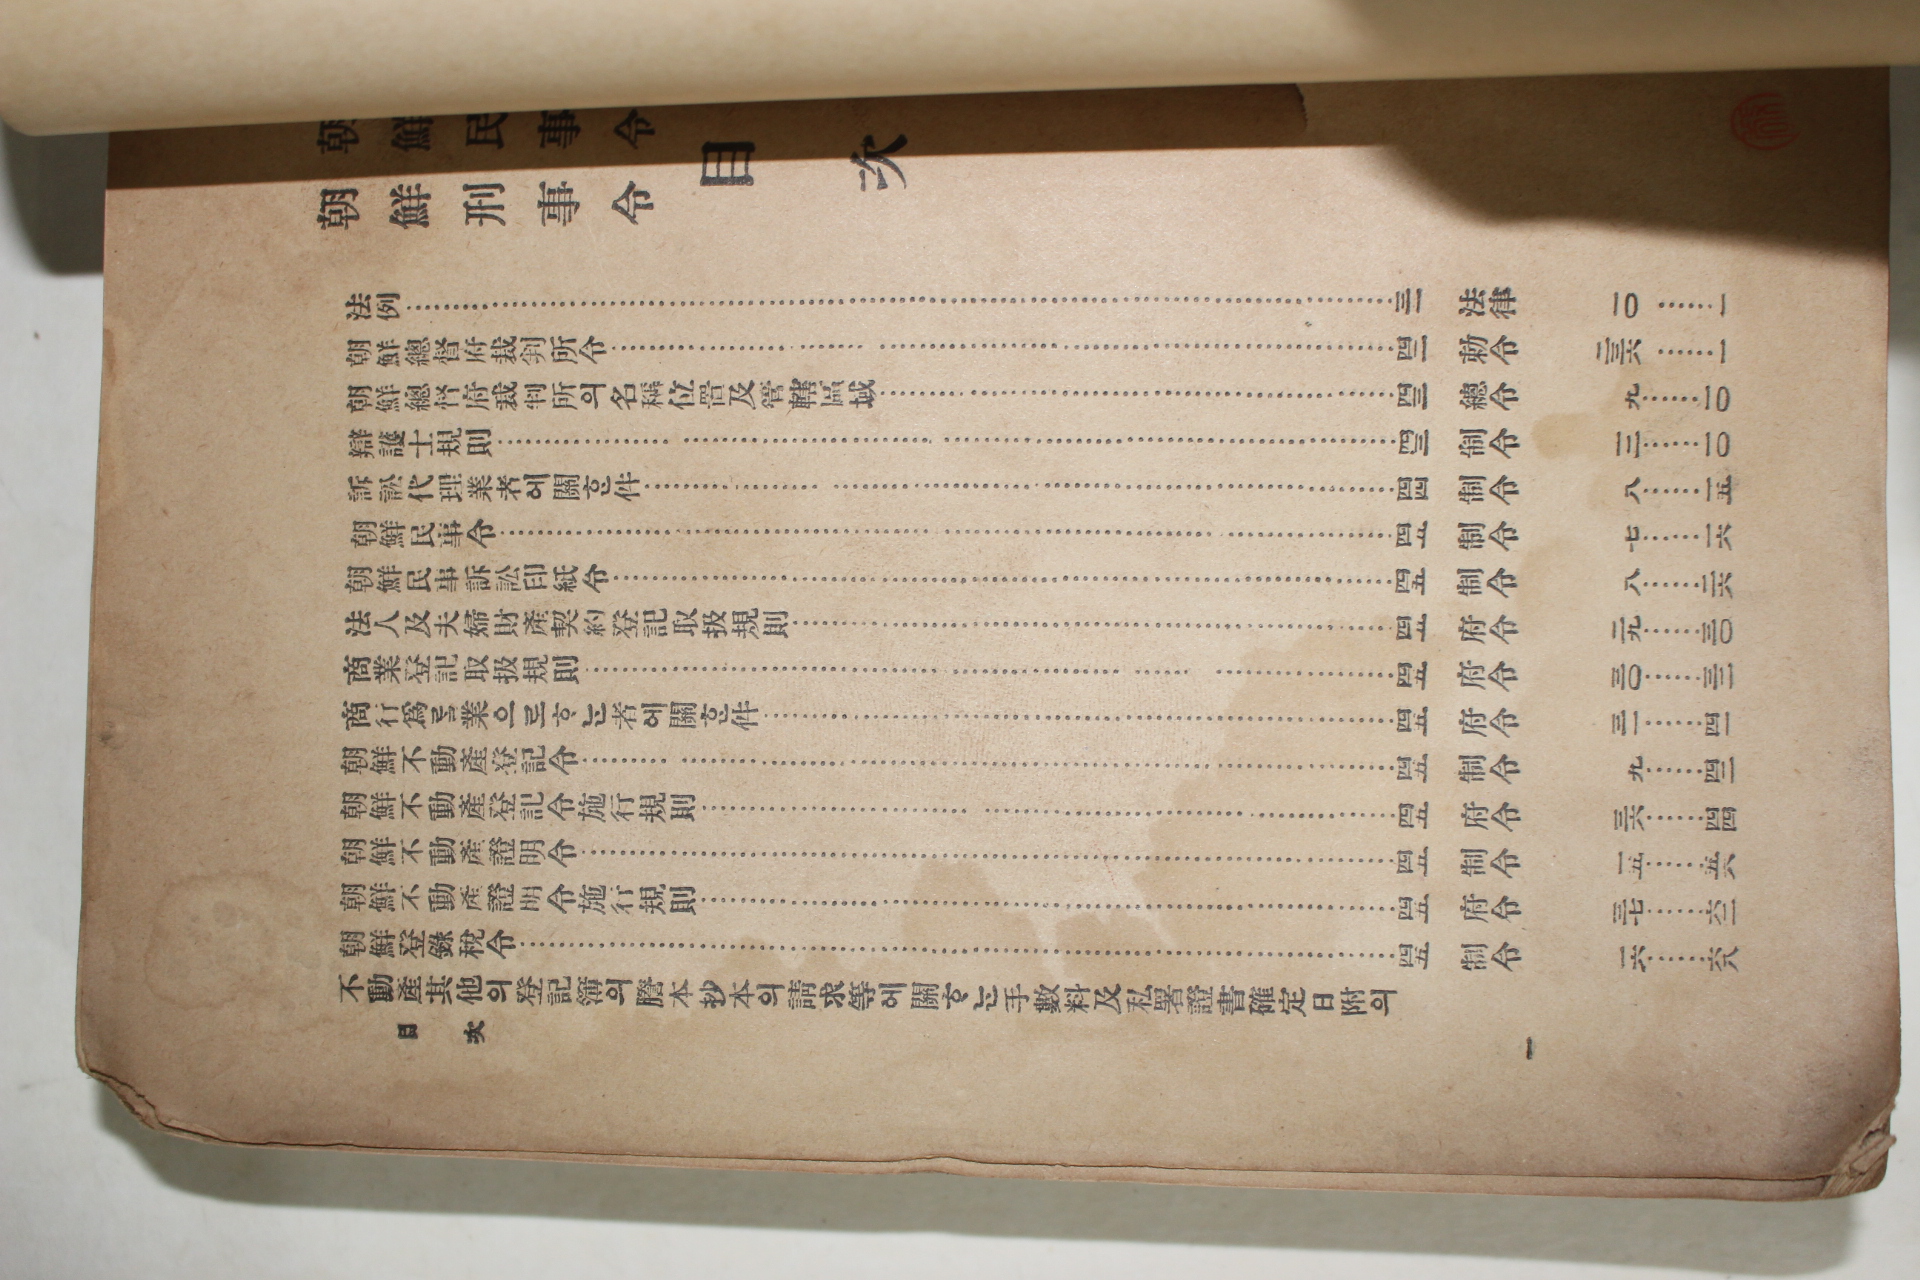 朝鮮民事令
朝鮮刑事令
目次
法例…………三一 法律 一〇……一
朝鮮總督府裁判所令…………四二 勅令 二三六……一
朝鮮總督府裁判所의名稱位置及管轄區域…………四三 總令 九……一〇
辯護士規則…………四三 制令 一二……一〇
訴訟代理業者에關ᄒᆞᆫ件…………四四 制令 八……一五
朝鮮民事令…………四五 制令 七……一六
朝鮮民事訴訟印紙令…………四五 制令 八……二六
法人及夫婦財產契約登記取扱規則…………四五 府令 二九……三〇
商業登記取扱規則…………四五 府令 三〇……三二
商行爲ᄅᆞᆯ業으로ᄒᆞᄂᆞᆫ者에關ᄒᆞᆫ件…………四五 府令 三一……四一
朝鮮不動產登記令…………四五 制令 九……四二
朝鮮不動產登記令施行規則…………四五 府令 三六……四四
朝鮮不動產證明令…………四五 制令 一五……五六
朝鮮不動產證明令施行規則…………四五 府令 三七……六二
朝鮮登錄稅令…………四五 制令 一六……六八
不動產其他의登記簿의謄本抄本의請求等에關ᄒᆞᄂᆞᆫ手數料及私署證書確定日附의
目次
一